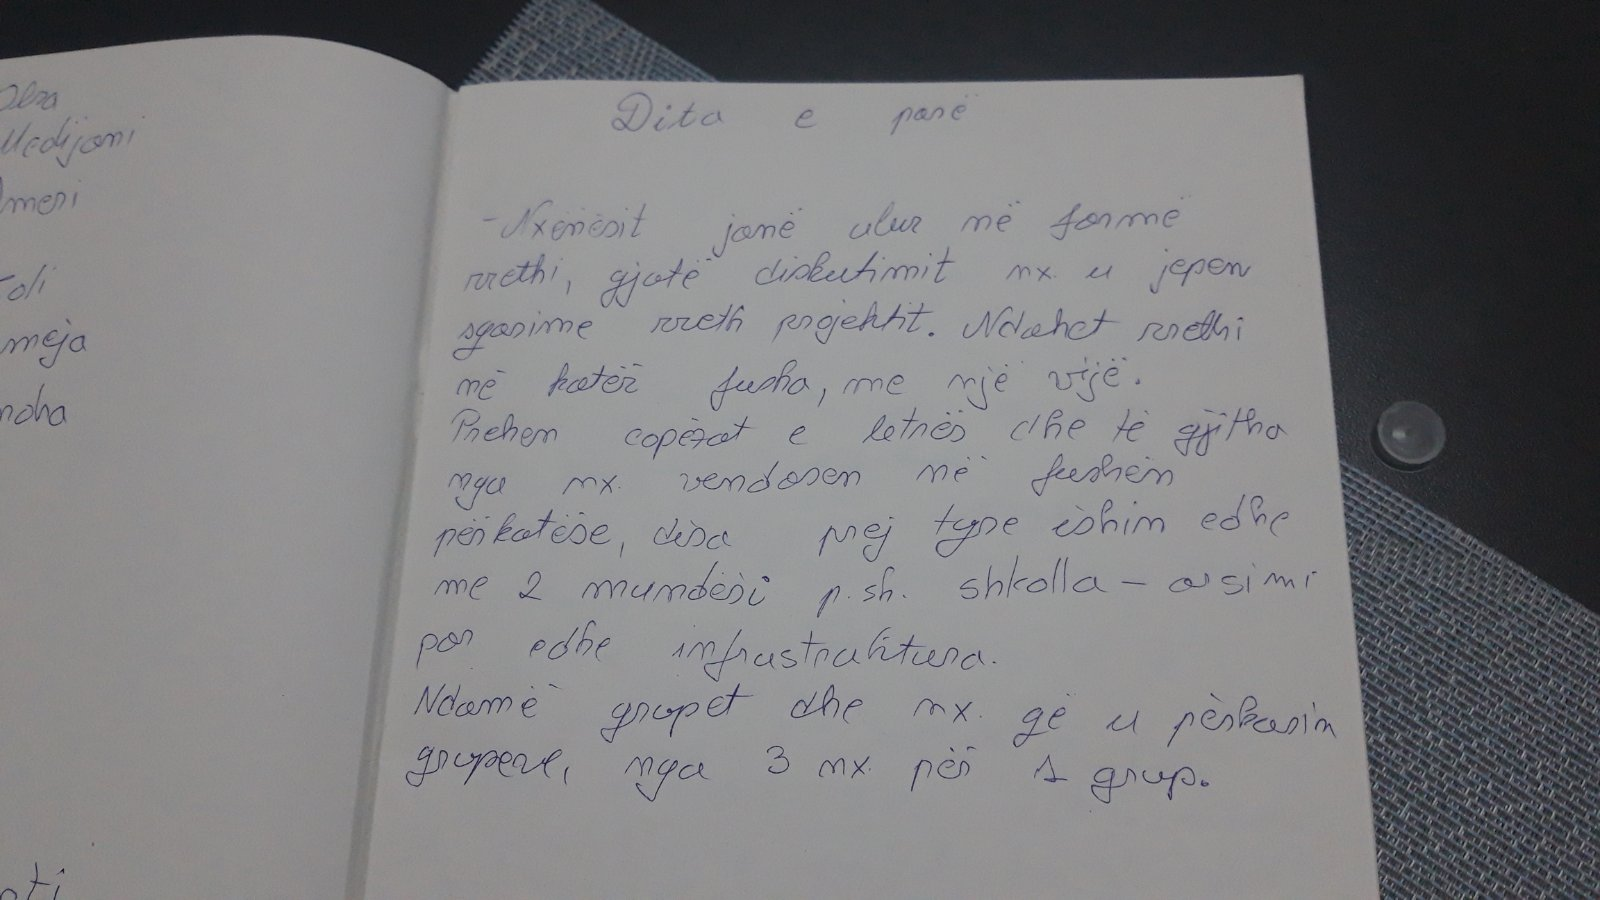 Medijani
meri
oli
meja
noha
oti
Dita e parë
- Nxënësit janë ulur në formë
rrethi, gjatë diskutimit nx. u jepen
sqarime rreth projektit. Ndahet rrethi
në katër fusha, me një vijë.
Prehen copëzat e letrës dhe të gjitha
nga nx. vendosen në fushën
përkatëse, disa prej tyre ishim edhe
me 2 mundësi p.sh. shkolla - arsimi
por edhe infrastruktura.
Ndamë grupet dhe nx. që u përkasim
grupeve, nga 3 nx. për 1 grup.